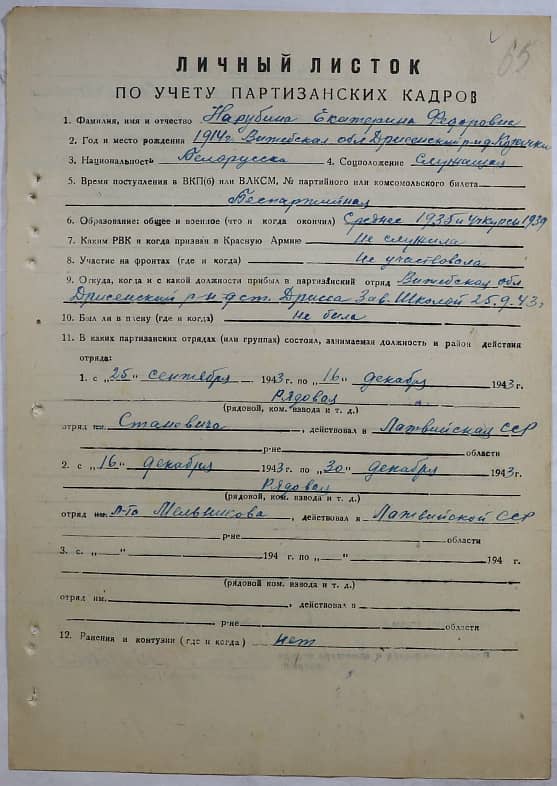 65
ЛИЧНЫЙ ЛИСТОК
ПО УЧЕТУ ПАРТИЗАНСКИХ КАДРОВ
1. Фамилия, имя и отчество Нарубина Екатерина Федоровна
2. Год и место рождения 1914 г. Витебская обл Дрисенский р-н д.
3. Национальность Белорусска 4. Соцположение Служащая
5. Время поступления в ВКП(б) или ВЛКСМ, № партийного или комсомольского билета
Беспартийная
6. Образование: общее и военное (что и когда окончил) Среднее 1935 и 1939
7. Каким РВК и когда призван в Красную Армию Не служила
8. Участие на фронтах (где и когда) Не участвовала
9. Откуда, когда и с какой должности прибыл в партизанский отряд Витебская обл
Дрисенский р-н д ст. Дрисса Зав. Школой 25.9.43г
10. Был ли в плену (где и когда) не была
11. В каких партизанских отрядах (или группах) состоял, занимаемая должность и район действия
отряда:
1. с „25" сентября 1943 г. по „16" декабря 1943 г.
Рядовая
(рядовой, ком. взвода и т. д.)
отряд им. Станевича, действовал в Латвийская ССР
р-не области
2. с „16" декабря 1943 г. по „30" декабря 1943 г.
Рядовая
(рядовой, ком. взвода и т. д.)
отряд им. л-та Мельникова, действовал в Латвийской ССР
р-не области
3. с. „ " 194 г по „ " 194 г.
(рядовой ком. взвода и т. д.)
отряд им. , действовал в
р-не области
12. Ранения и контузии (где и когда) нет